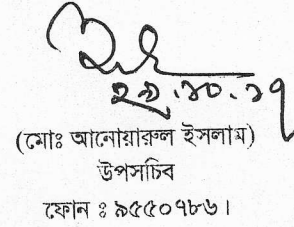 ২৯.১০.১৭
(মোঃ আনোয়ারুল ইসলাম)
উপসচিব
ফোন ঃ ৯৫৫০৭৮৬।